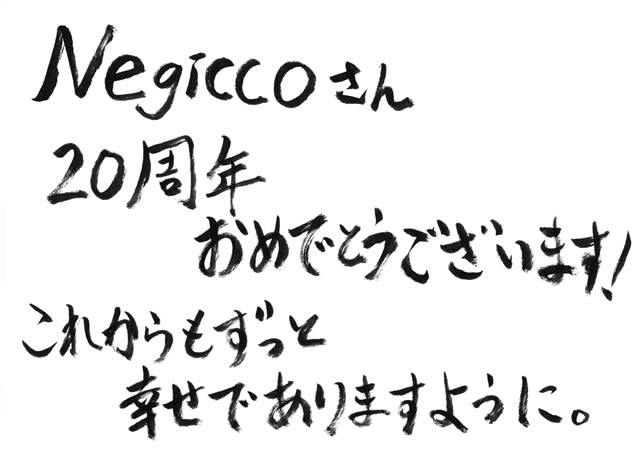 Negiccoさん
20周年
おめでとうございます!
これからもずっと
幸せでありますように。